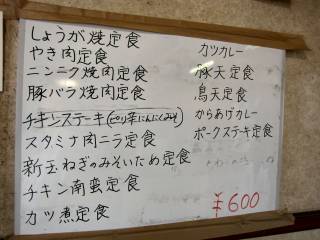 しょうが焼定食
やき肉定食
ニンニク焼肉定食
豚バラ焼肉定食
チキンステーキ(ピリ辛にんにくみそ)
スタミナ肉ニラ定食
新玉ねぎのみそいため定食
チキン南蛮定食
カツ煮定食
カツカレー
豚天定食
鳥天定食
からあげカレー
ポークステーキ定食
￥600